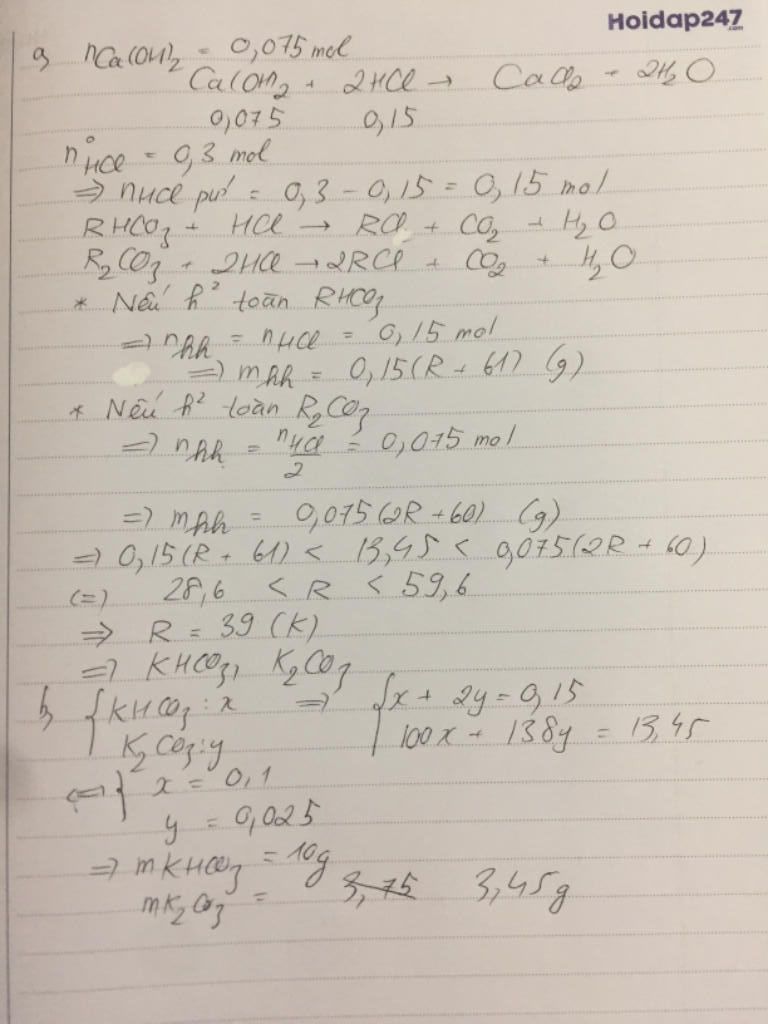 Hoidap247
.com
a, nCa(OH)₂ = 0,075 mol
Ca(OH)₂ + 2HCl → CaCl₂ + 2H₂O
0,075 0,15
n°HCl = 0,3 mol
=> nHCl pứ = 0,3 - 0,15 = 0,15 mol
RHCO₃ + HCl → RCl + CO₂ + H₂O
R₂CO₃ + 2HCl → 2RCl + CO₂ + H₂O
* Nếu h² toàn RHCO₃
=> nhh = nHCl = 0,15 mol
=> mhh = 0,15(R + 61) (g)
* Nếu h² toàn R₂CO₃
=> nhh = nHCl/2 = 0,075 mol
=> mhh = 0,075(2R + 60) (g)
=> 0,15(R + 61) < 13,45 < 0,075(2R + 60)
(=) 28,6 < R < 59,6
=> R = 39 (K)
=> KHCO₃, K₂CO₃
b, { KHCO₃ : x => { x + 2y = 0,15
K₂CO₃ : y 100x + 138y = 13,45
<=> { x = 0,1
y = 0,025
=> mKHCO₃ = 10g
mK₂CO₃ = 3,75 3,45g